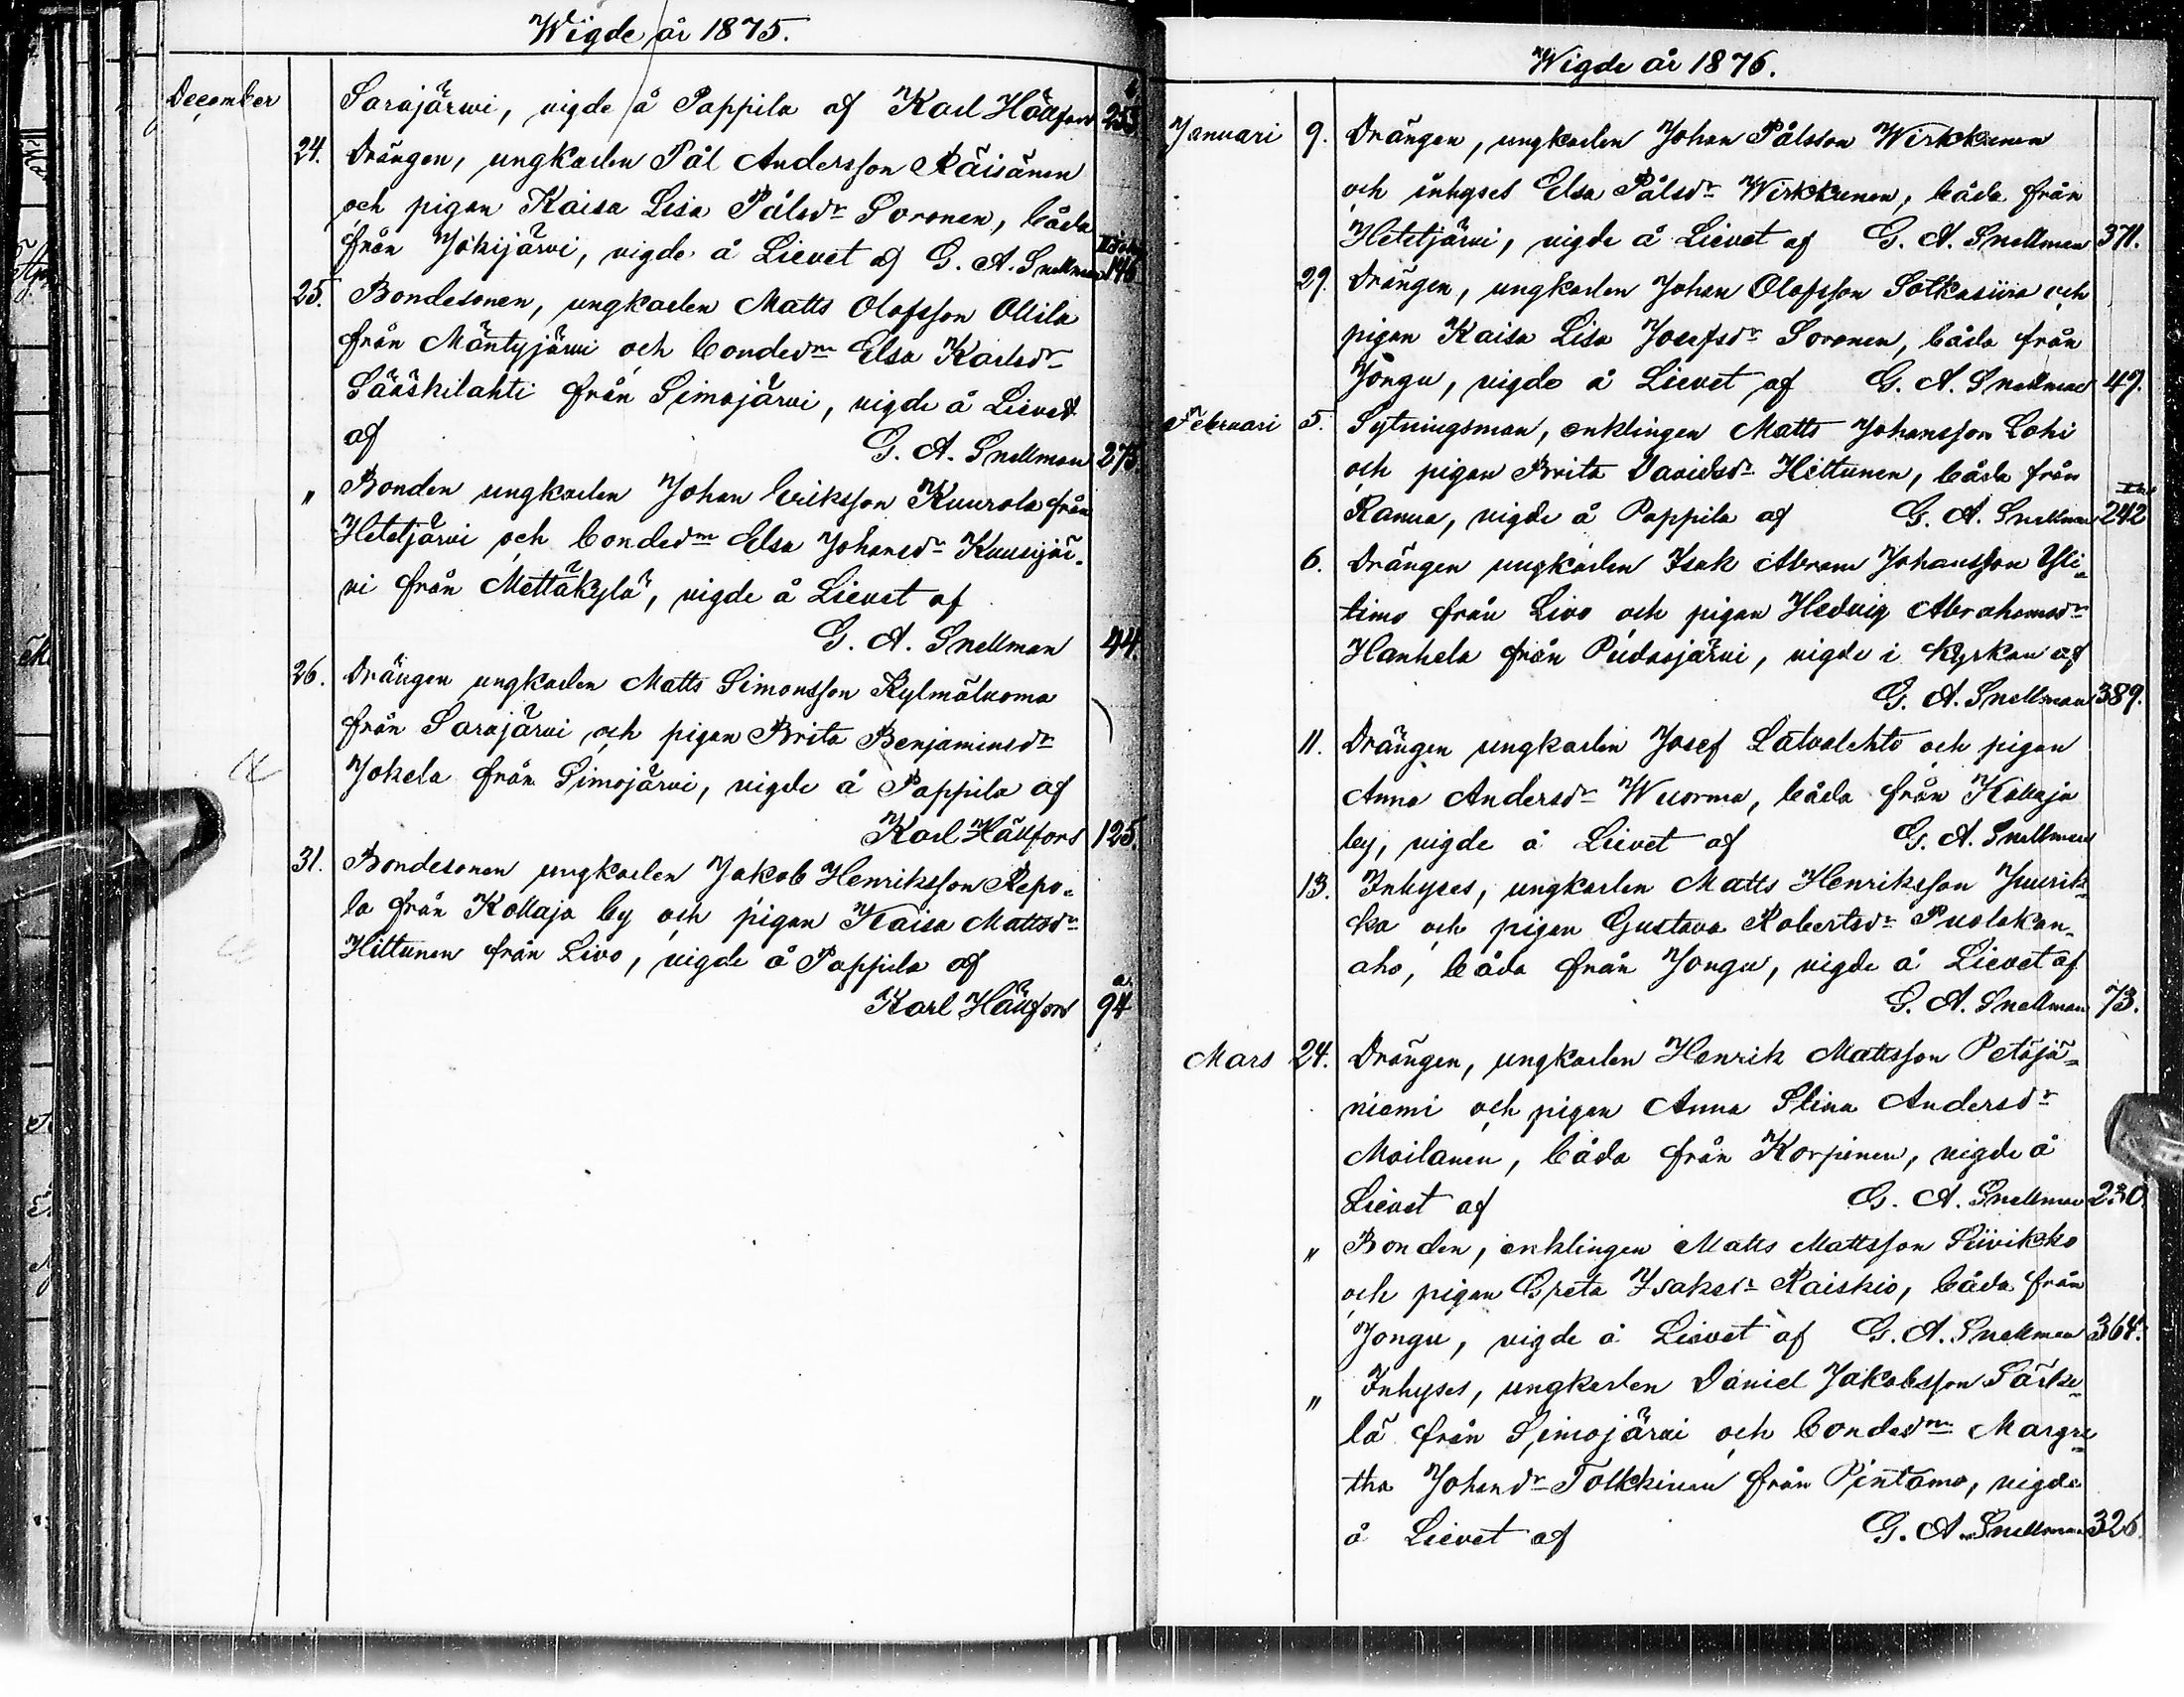 Wigde år 1875.
December Sarajärwi, vigde å Pappila af Karl Hällfors 253.
24. Drängen, ungkarlen Pål Andersson Räisänen
och pigan Kaisa Lisa Pålsdr Soronen, båda
från Jokijärvi, vigde å Lievet af G. A. Snellman 146
25. Bondesonen, ungkarlen Matts Olofsson Ollila
från Mäntyjärvi och bondedm Elsa Karlsdr
Sääskilahti från Simojärvi, vigde å Lievet
af G. A. Snellman 275.
" Bonden ungkarlen Johan Eriksson Kuurola från
Hetetjärvi och bondedm Elsa Johansdr Kuusijär-
vi från Mettäkylä, vigde å Lievet af
G. A. Snellman 44.
26. Drängen ungkarlen Matts Simonsson Kylmäluoma
från Sarajärvi och pigan Brita Benjaminsdr
Jokela från Simojärvi, vigde å Pappila af
Karl Hällfors 125.
31. Bondesonen ungkarlen Jakob Henriksson Repo-
la från Kollaja by och pigan Kaisa Mattsdr
Hiltunen från Livo, vigde å Pappila af
Karl Hällfors a. 94
Wigde år 1876.
Januari 9. Drängen, ungkarlen Johan Pålsson Wirkkunen
och inhyses Elsa Pålsdr Wirkkunen, båda från
Hetetjärvi, vigde å Lievet af G. A. Snellman 371.
29. Drängen, ungkarlen Johan Olofsson Sotkasiira och
pigan Kaisa Lisa Josefsdr Soronen, båda från
Jongu, vigde å Lievet af G. A. Snellman 47.
Februari 5. Sytningsman, enklingen Matts Johansson Lohi
och pigan Brita Davidsdr Hiltunen, båda från
Ranua, vigde å Pappila af G. A. Snellman 242
6. Drängen ungkarlen Isak Abram Johansson Yli-
timo från Livo och pigan Hedvig Abrahamsdr
Hanhela från Pudasjärvi, vigde i kyrkan af
G. A. Snellman 389.
11. Drängen ungkarlen Josef Latvalehto och pigan
Anna Andersdr Wuorma, båda från Kollaja
by, vigde å Lievet af G. A. Snellman
13. Inhyses, ungkarlen Matts Henriksson Juurik-
ka och pigan Gustava Robertsdr Puolakan-
aho, båda från Jongu, vigde å Lievet af
G. A. Snellman 73.
Mars 24. Drängen, ungkarlen Henrik Mattsson Petäjä-
niemi och pigan Anna Stina Andersdr
Moilanen, båda från Korpinen, vigde å
Lievet af G. A. Snellman 230
" Bonden, enklingen Matts Mattsson Siivikko
och pigan Greta Isaksdr Raiskio, båda från
Jongu, vigde å Lievet af G. A. Snellman 364.
" Inhyses, ungkarlen Daniel Jakobsson Särke-
lä från Simojärvi och bondedm Margre-
tha Johansdr Tolkkinen från Pintamo, vigde
å Lievet af G. A. Snellman 326.